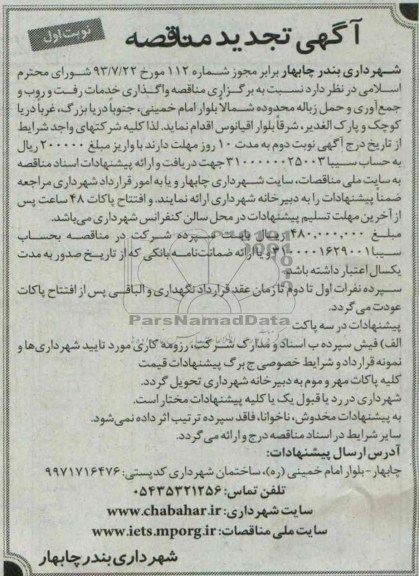 نوبت اول
آگهی تجدید مناقصه
شهرداری بندر چابهار برابر مجوز شماره ۱۱۲ مورخ ۹۳/۷/۲۲ شورای محترم
اسلامی در نظر دارد نسبت به برگزاری مناقصه واگذاری خدمات رفت و روب و
جمع‌آوری و حمل زباله محدوده شمالاً بلوار امام خمینی، جنوباً دریا بزرگ، غرباً دریا
کوچک و پارک الغدیر، شرقاً بلوار اقیانوس اقدام نماید. لذا کلیه شرکتهای واجد شرایط
از تاریخ درج آگهی نوبت دوم به مدت ۱۰ روز مهلت دارند با واریز مبلغ ۲۰۰۰۰۰ ریال
به حساب سیبا ۳۱۰۰۰۰۰۰۲۵۰۰۳ جهت دریافت و ارائه پیشنهادات اسناد مناقصه
به سایت ملی مناقصات، سایت شهرداری چابهار و یا به امور قرارداد شهرداری مراجعه
ضمناً پیشنهادات را به دبیرخانه شهرداری ارائه نمایند. و افتتاح پاکات ۴۸ ساعت پس
از آخرین مهلت تسلیم پیشنهادات در محل سالن کنفرانس شهرداری می‌باشد.
مبلغ ۴۸۰,۰۰۰,۰۰۰ ریال بابت سپرده شرکت در مناقصه بحساب
سیبا و یا ارائه ضمانت‌نامه بانکی که از تاریخ صدور به مدت
یکسال اعتبار داشته باشد
سپرده نفرات اول تا دوم تا زمان عقد قرارداد نگهداری و الباقی پس از افتتاح پاکات
عودت می‌گردد.
پیشنهادات در سه پاکت
الف) فیش سپرده ب اسناد و مدارک شرکت، رزومه کاری مورد تایید شهرداری‌ها و
نمونه قرارداد و شرایط خصوصی ج برگ پیشنهادات قیمت
کلیه پاکات مهر و موم به دبیرخانه شهرداری تحویل گردد.
شهرداری در رد یا قبول یک یا کلیه پیشنهادات مختار است.
به پیشنهادات مخدوش، ناخوانا، فاقد سپرده ترتیب اثر داده نمی‌شود.
سایر شرایط در اسناد مناقصه درج و ارائه می‌گردد.
آدرس ارسال پیشنهادات:
چابهار-بلوار امام خمینی (ره)، ساختمان شهرداری کدپستی: ۹۹۷۱۷۱۶۴۷۶
تلفن تماس: ۰۵۴۳۵۳۲۱۲۵۶
سایت شهرداری: www.chabahar.ir
سایت ملی مناقصات: www.iets.mporg.ir
شهرداری بندر چابهار
ParsNamadData